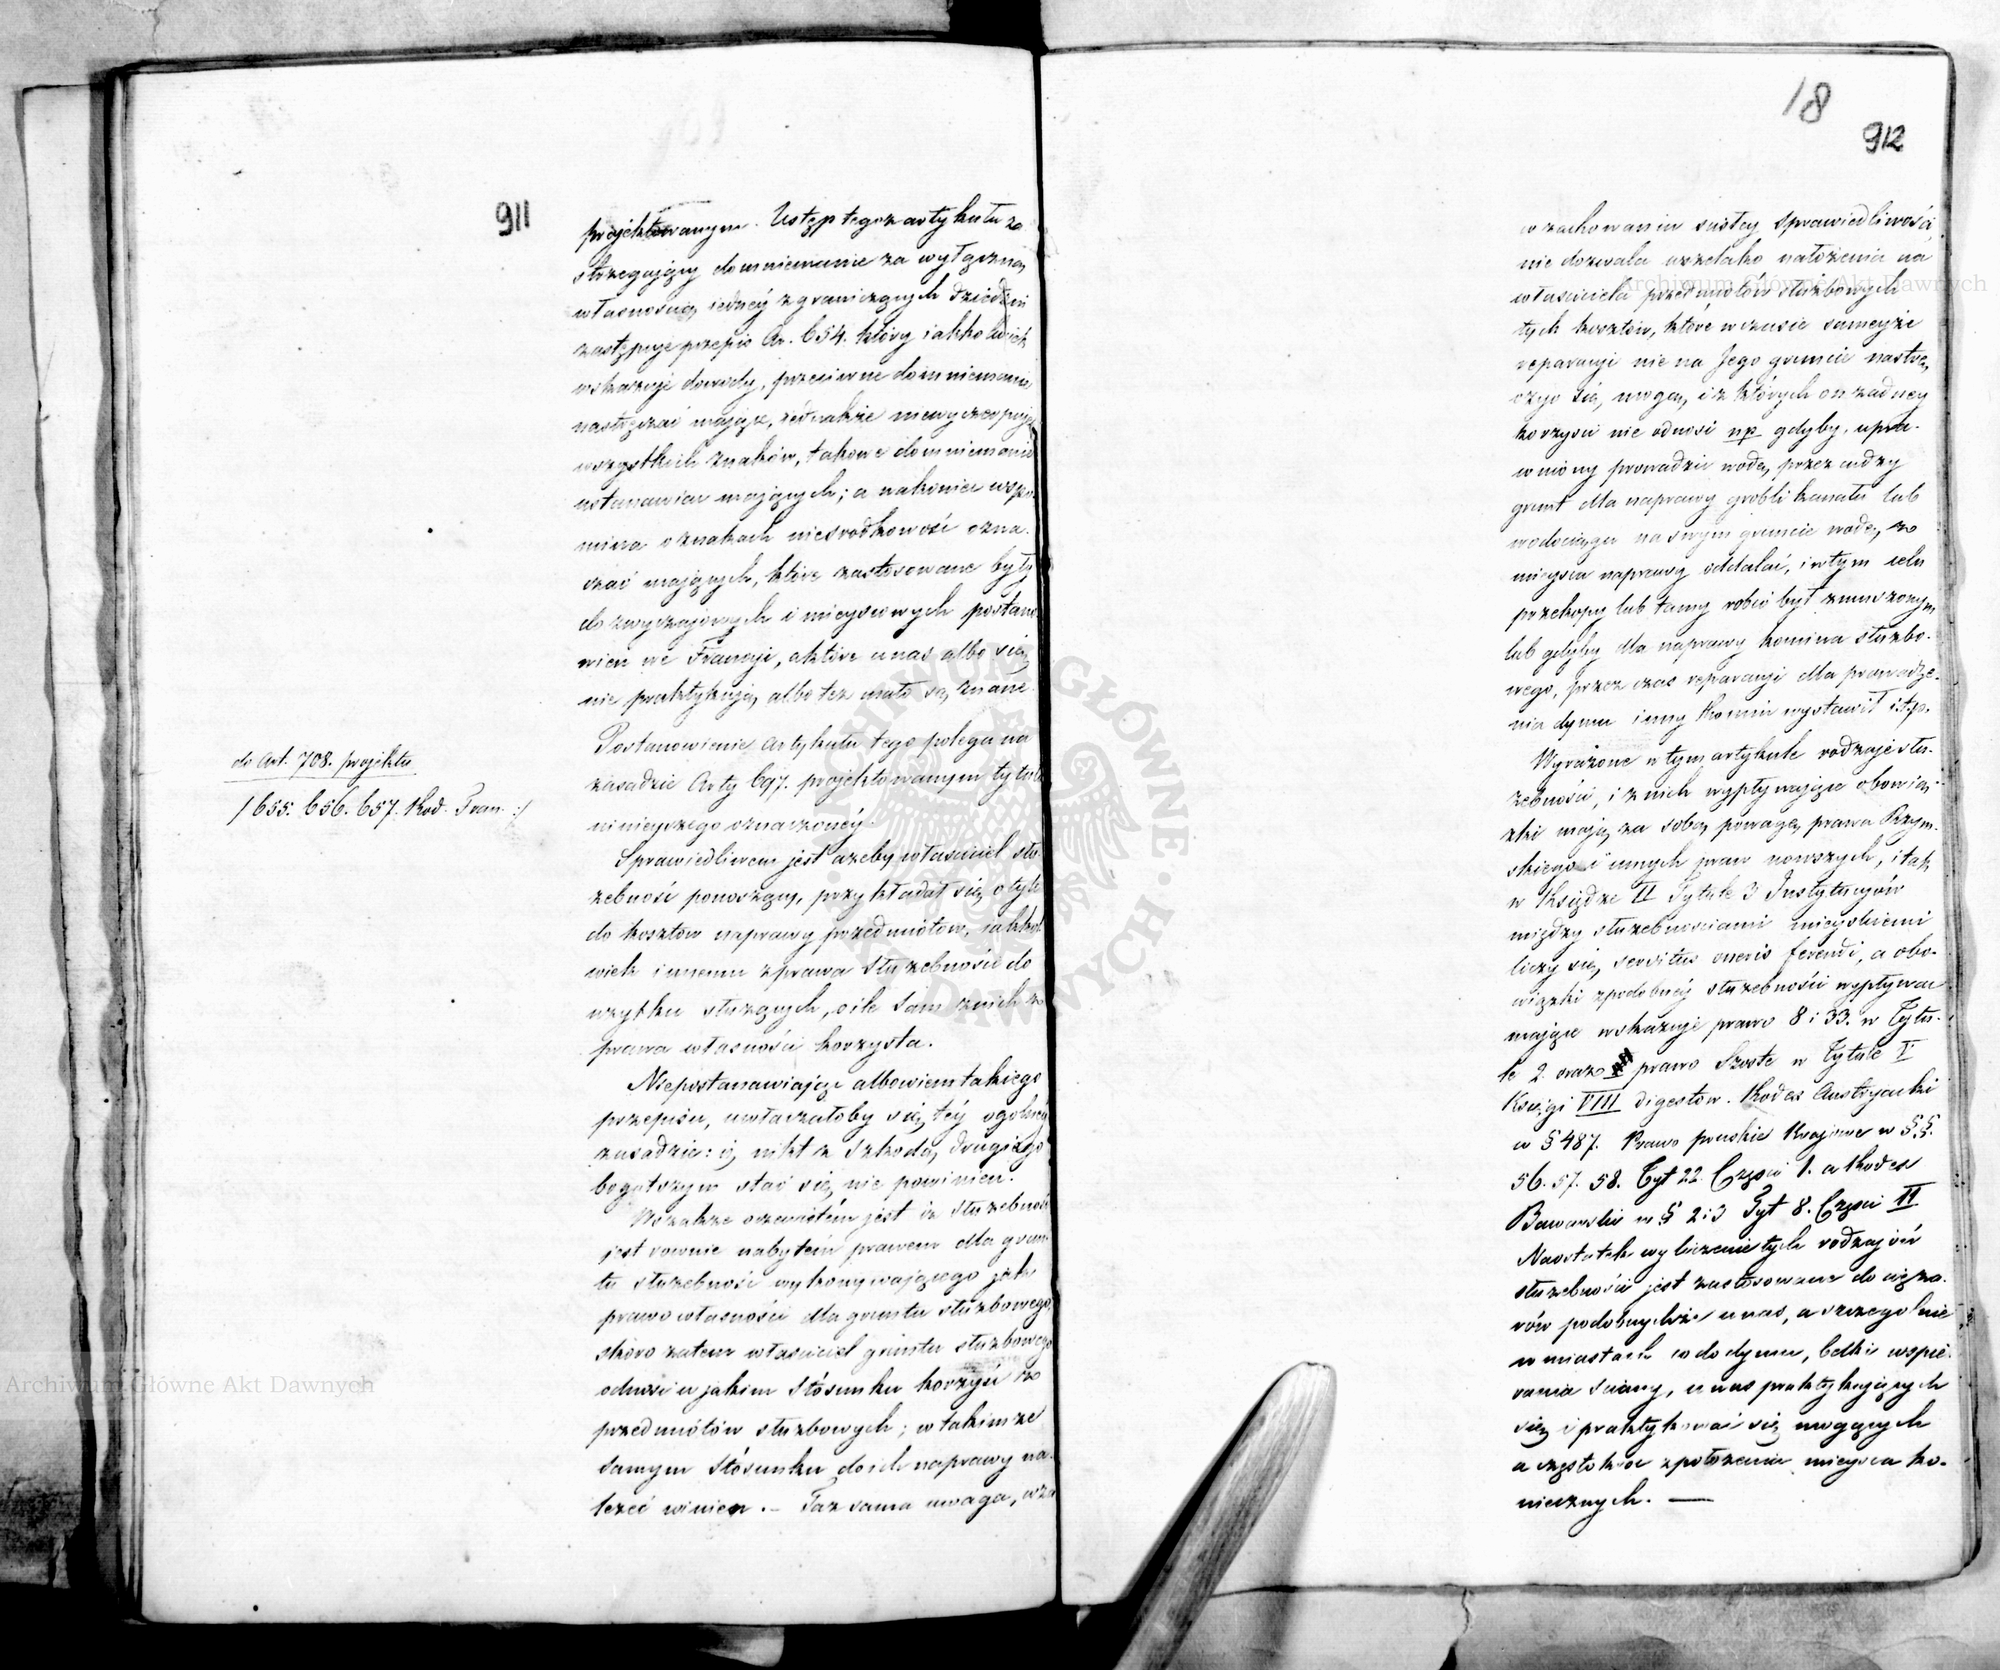 911
projektowanym. Ustęp tegoż artykułu za
strzegający domniemanie za wyłączną
własnością iedney z graniczących dziedzin
zastępuje przepis Ar. 654. który iakkolwiek
wskazuje dowody, przeciwne domniemanie
nastręczać mające, iednakże niewyczerpuje
wszystkich znaków, takowe domniemanie
ustanawiać mających; a nakoniec wspo
mina o znakach niesrodkowość ozna-
czać mających, które zastosowane były
do zwyczajowych i mieyscowych postano
wień we Francyi, a które u nas albo się
nie praktykują, albo też mało są znane.
do Art. 708. projektu
/655. 656. 657. Kod. Fran:/
Postanowienie Artykułu tego polega na
zasadzie Arty 697. projektowanym tytule
ninieyszego oznaczoney.
Sprawiedliwem jest ażeby właściciel słu
żebność ponoszący, przykładał się o tyle
do kosztów naprawy przedmiotów, iakkol
wiek innemu z prawa służebności do
użytku służących, o ile sam z nich z
prawa własności korzysta.
Niepostanawiając albowiem takiego
przepisu, uwłaczałoby się, tey ogolney
zasadzie: iż nikt z szkodą drugiego
bogatszym stać się nie powinien.
Wszakże oczewistem jest iż służebność
jest rownie nabytem prawem dla grun
tu służebność wykonywającego jak
prawo własności dla gruntu służbowego,
skoro zatem właściciel gruntu służbowego
odnosi w jakim stósunku korzyść z
przedmiotów służbowych; w takimże
samym stósunku do ich naprawy na-
leżeć winien. – Taż sama uwaga, wza
18
912
w zachowaniu ścisłey sprawiedliwości
nie dozwala wszelako nałożenia na
właściciela przedmiotów służbowych
tych kosztów, które w czasie sameyże
reparacyi nie na Jego gruncie nastrę
czyć się, mogą, i z których on żadney
korzyści nie odnosi np gdyby, upra-
wniony prowadzić wodę, przez cudzy
grunt dla naprawy grobli kanału lub
wodociągu na swym gruncie wodę, z
mieysca naprawy oddalać, i w tym celu
przekopy lub tamy robić był zmuszonym
lub gdyby dla naprawy komina służbo-
wego, przez czas reparacyi dla prowadze-
nia dymu inny komin wystawił i.t.p.
Wyrażone w tym artykule rodzaje słu-
żebności, i z nich wypływające obowią
zki mają, za sobą powagę, prawa Rzym-
skiego i innych praw nowszych, i tak
w Księdze II Tytule 3 Instytucyów
między służebnościami mieyskiemi
liczy się, servitus oneris ferendi, a obo-
wiązki z podobney służebności wypływać
mające wskazuje prawo 8 i 33. w Tytu-
le 2. oraz prawo szoste w Tytule V
Księgi VIII digestów. Kodex Austryacki
w § 487. Prawo pruskie Krajowe w §§.
56. 57. 58. Tyt 22. Części 1. a Kodex
Bawarski w § 2 i 3 Tyt 8. Części II
Naostatek wyliczenie tych rodzajów
służebności jest zastosowane do cięża-
rów podobnychże u nas, a szczególnie
w miastach co do dymu, belki wspie-
rania ściany, u nas praktykujących
się i praktykować się mogących
a częstokroć z położenia mieysca ko-
niecznych. —
Archiwum Główne Akt Dawnych